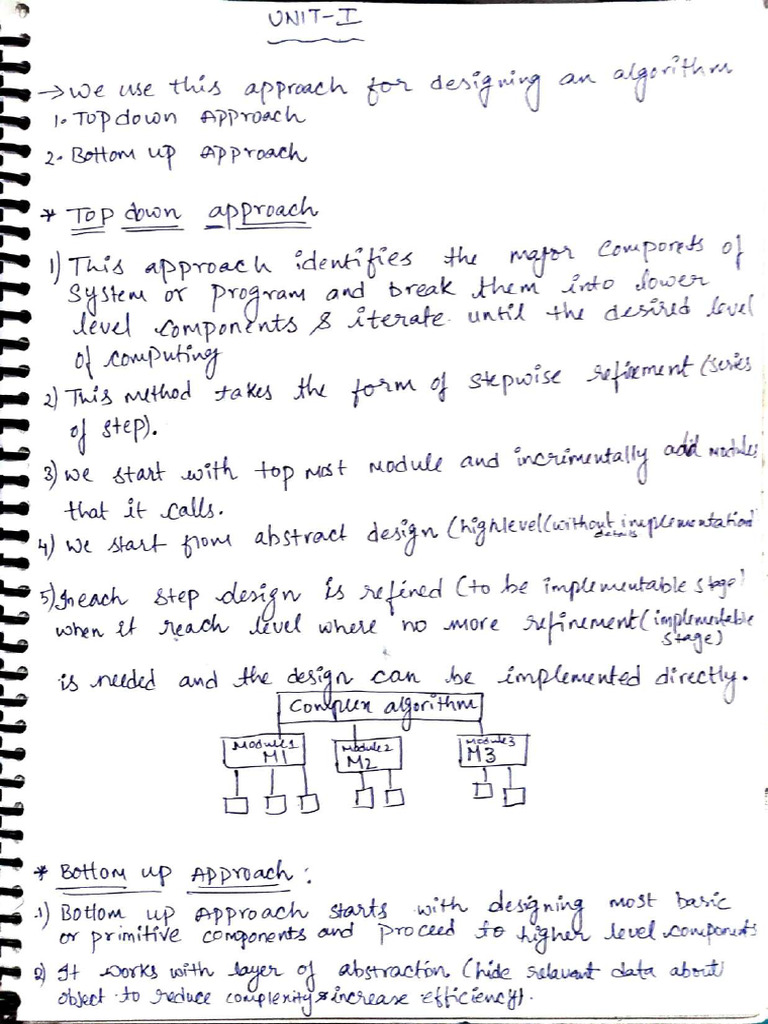 UNIT-I
→ We use this approach for designing an algorithm
1. Top down Approach
2. Bottom up Approach
* Top down approach
1) This approach identifies the major componets of
System or program and break them into lower
level components & iterate until the desired level
of computing
2) This method takes the form of stepwise refinement (series
of step).
3) we start with top most Module and incrimentally add modules
that it calls.
4) We start from abstract design (highlevel(without implementation
details
5) In each step design is refined (to be implementable stage)
when it reach level where no more refinement (implementable
stage)
is needed and the design can be implemented directly.
Complex algorithm
Module1 Module2 Module3
M1 M2 M3
* Bottom up Approach :
1) Bottom up Approach starts with designing most basic
or primitive components and proceed to higher level components
2) It works with layer of abstraction (hide relavent data about
object to reduce complexity & increase efficiency).